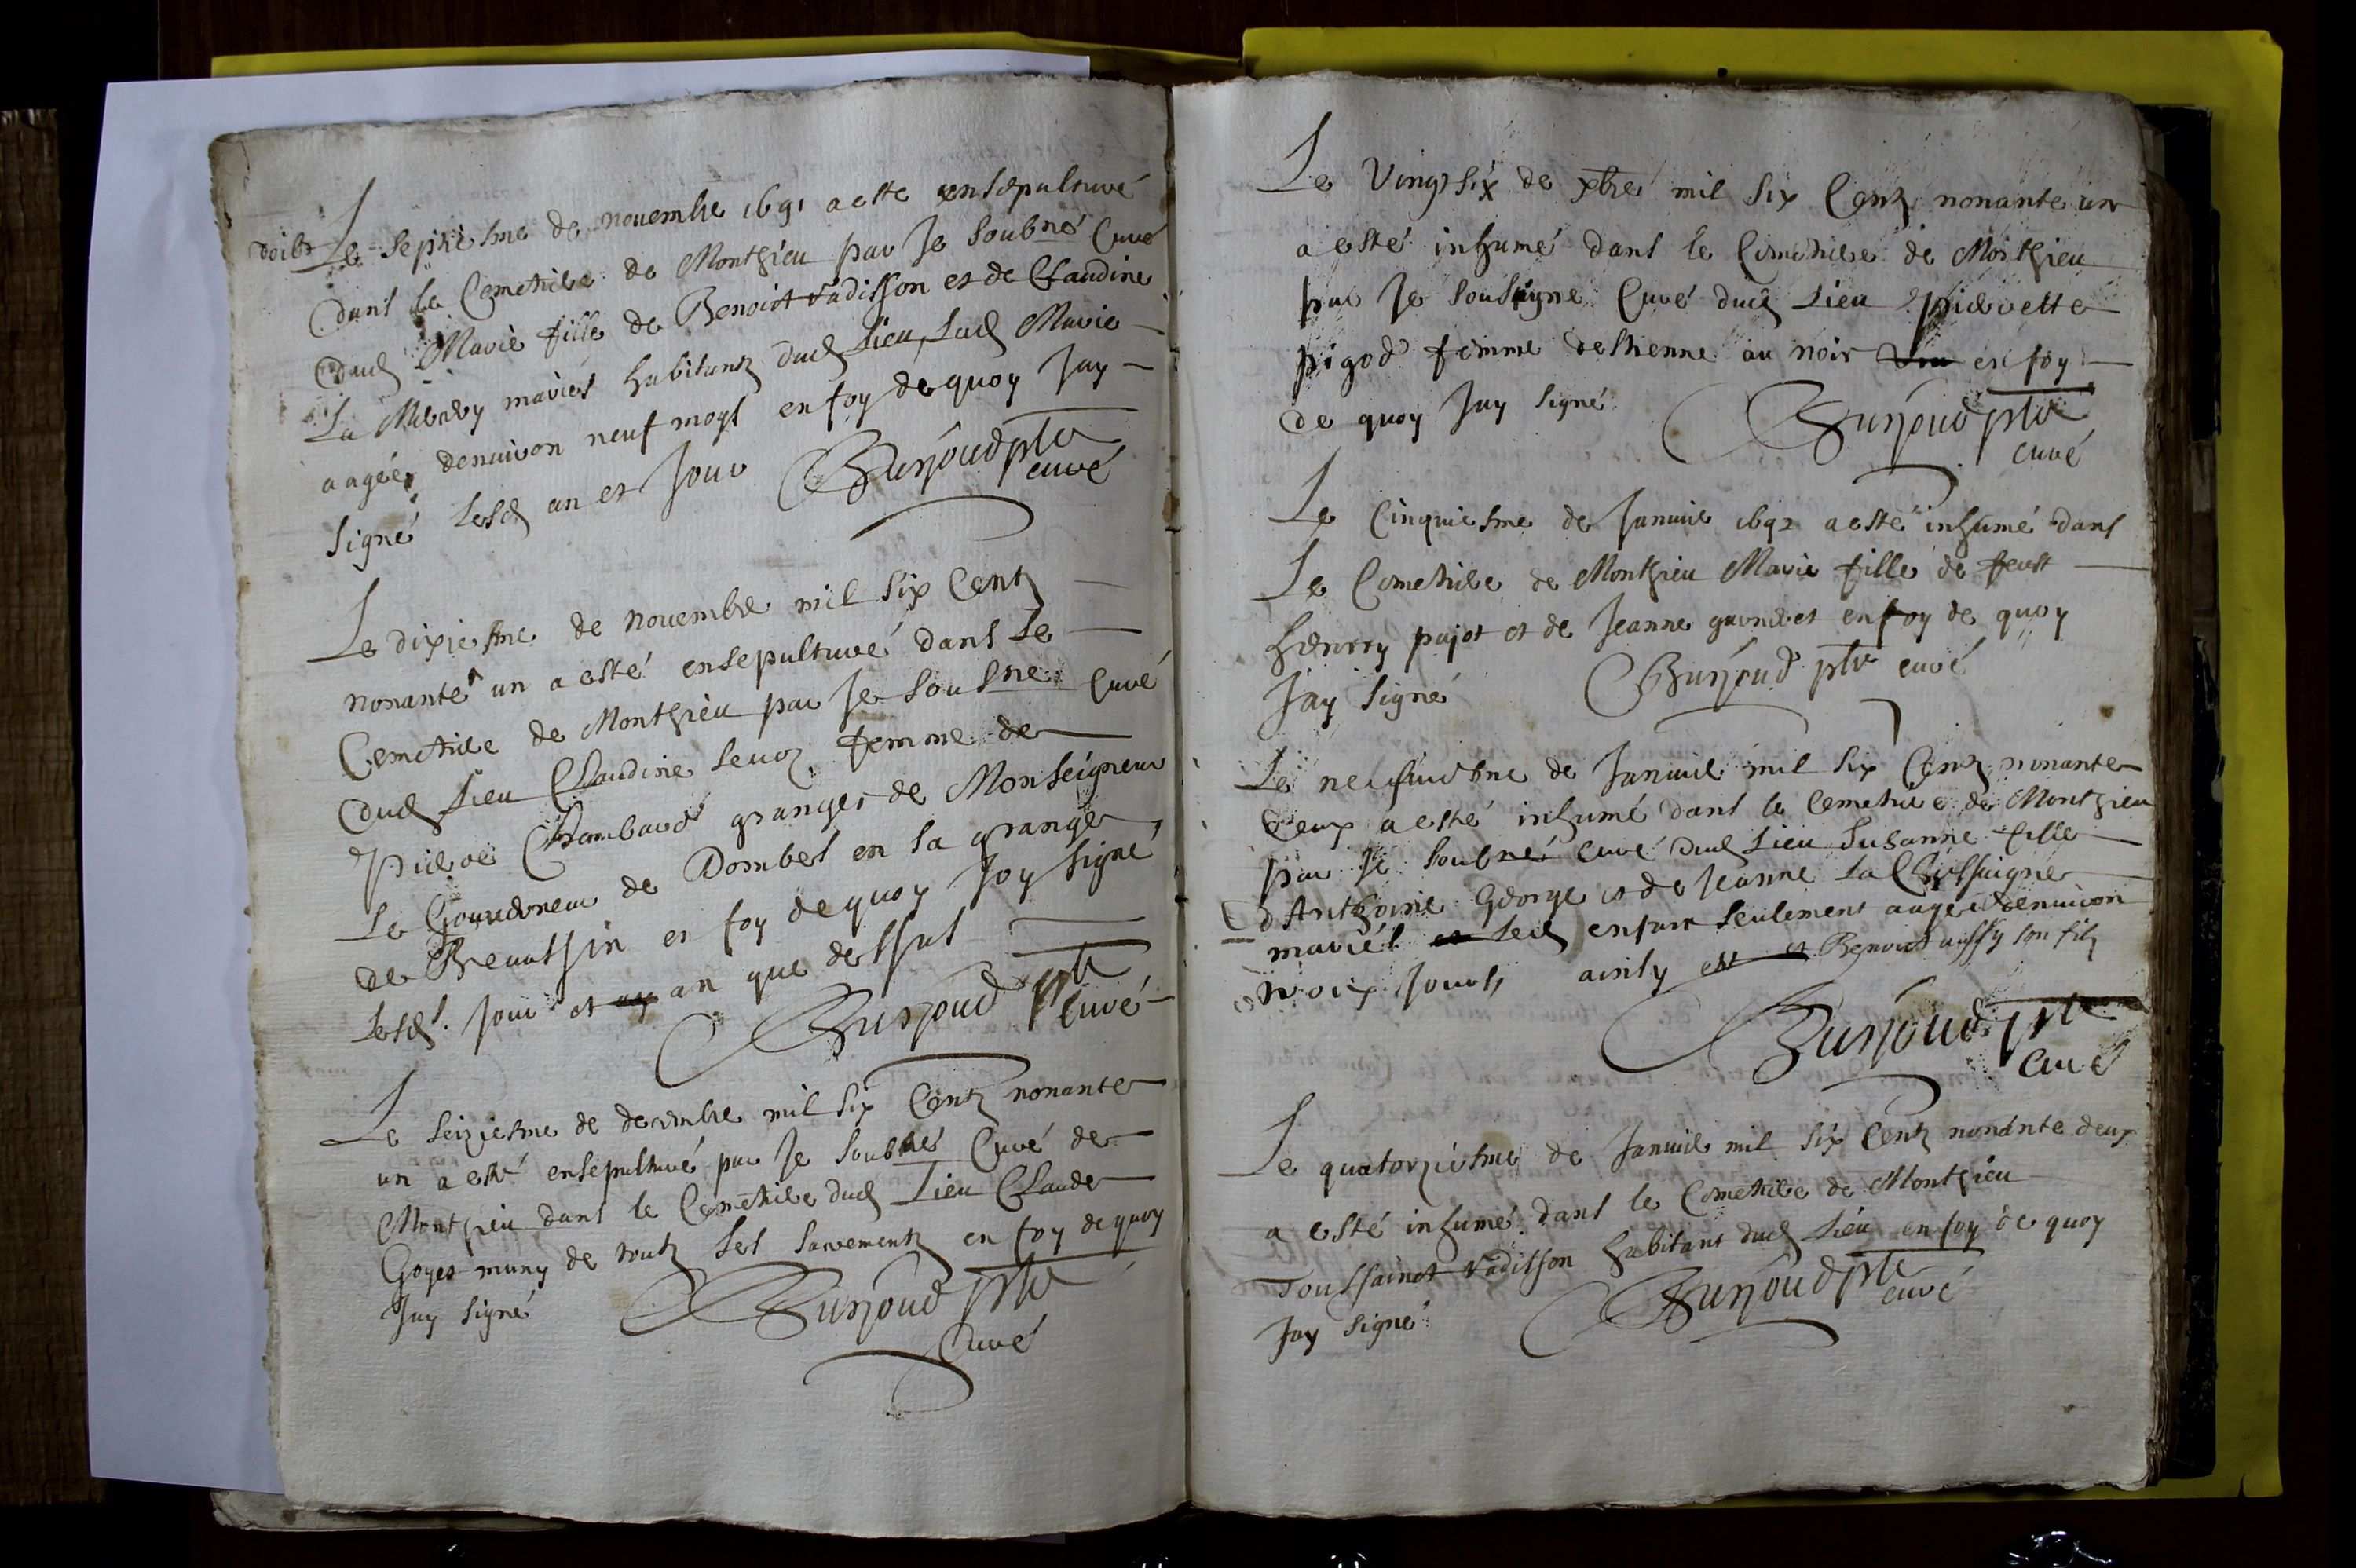 doibt Le septiesme de novembre 1691 a este ensepulturé
dans le Cemetiere de Monthieu par Je Soubné Curé
dud Marie fille de Benoict vadisson et de Claudine
La Merdy mariés habitantz dud Lieu, Lad Marie
aagée denviron neuf moys en foy de quoy Jay
signé Lesd an et Jour Burjoud ptre
curé
Le dixiesme de novembre mil six Centz
nonante un a esté ensepulturé dans Le
Cemetiere de Monthieu par Je Sousne Curé
dud Lieu Claudine femme de
Pierre Chambard granger de Monseigneur
Le Gouverneur de Dombes en sa grange
de en foy de quoy Joy signé
Lesd. Jour et an que dessus
Burjoud ptre
Curé
Le seiziesme de decembre mil six Centz nonante
un a esté ensepulturé par Je Soubné Curé de
Monthieu dans le Cemetiere dud Lieu Claude
Goyet muny de toutz ses sacrementz en foy de quoy
Jay signé Burjoud ptre
Curé
Le Vingt six de xbre mil six Centz nonante un
a esté inhumé dans le Cimetiere de Monthieu
par Je Soubsigne Curé dud Lieu Pierrette
pigod femme destienne au noir en foy
de quoy Jay signé Burjoud ptre
curé
Le Cinquiesme de Janvie 1692 a esté inhumé dans
Le Cimetiere de Monthieu Marie fille de feust
henrry pajot et de Jeanne en foy de quoy
Jay signé Burjoud ptre curé
Le neufviesme de Janvie mil six Centz nonante
deux a esté inhumé dans le Cemetiere de Monthieu
par Je Soubné curé dud Lieu Susanne fille
d'Anthoine George et de Jeanne La
mariés et led enfant seulement aagée denviron
trois Jours, ainsy est et Benoict aussy son filz
Burjoud ptre
Curé
Le quatorziesme de Janvie mil six Centz nonante deux
a esté inhumé dans le Cimetiere de Monthieu
Toussainct vadisson habitant dud Lieu en foy de quoy
Jay signé Burjoud ptre
curé